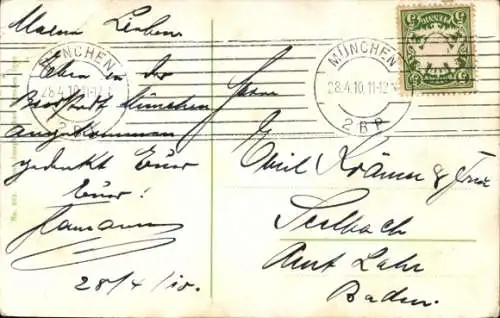 Meine Lieben.
Eben in der
Bierstadt München
angekommen
gedenkt Euer
Euer!
Hamann
28/4/10.
MÜNCHEN
28.4.10.11-12
2 B P
MÜNCHEN
28.4.10.11-12
2 B P
BAYERN
5
5
5
5
Herrn
Emil Krämer & Frau
Seelbach
Amt Lahr
Baden.